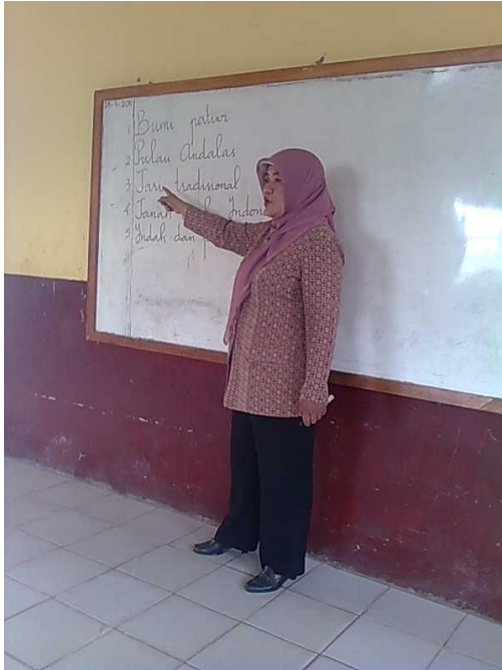 1 Bumi pertiwi
2 Pulau Andalas
3 Tari tradisional
4 Tanah Indon
5 Indah dan